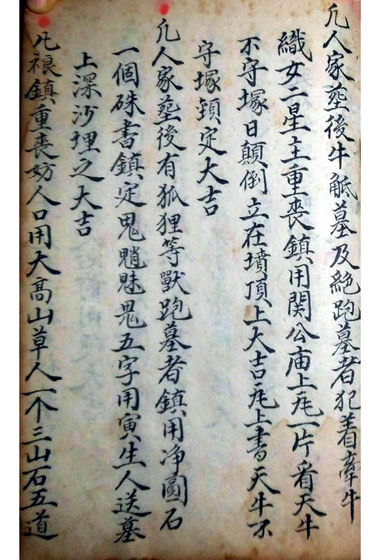 凡人家塟後牛觝墓及絶跑墓者犯着牽牛
織女二星主重丧鎮用関公庙上瓦一片看天牛
不守塚日顛倒立在墳頂上大吉瓦上書天牛不
守塚鎮定大吉
凡人家塟後有狐狸等獸跑墓者鎮用净圓石
一個硃書鎮定鬼魈魅鬼五字用寅生人送墓
上深沙埋之大吉
凡禳鎮重丧妨人口用大髙山草人一个三山石五道